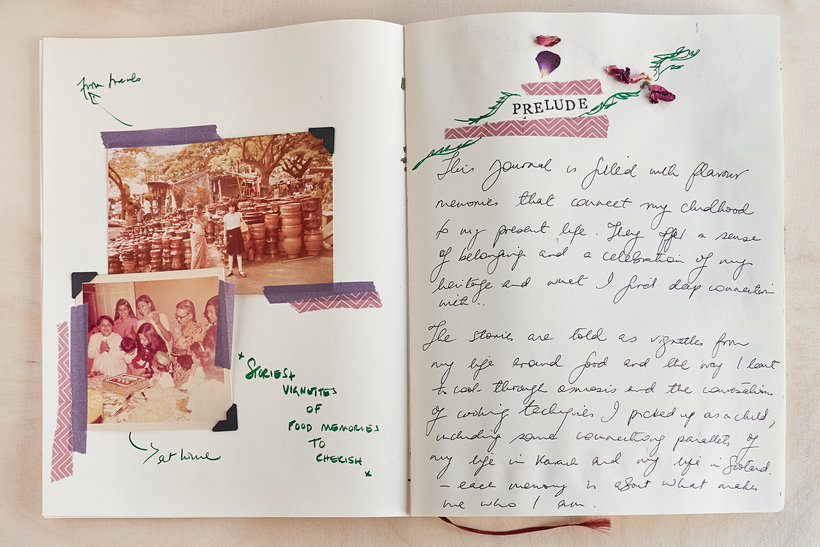 from travels
at home
*STORIES &
VIGNETTES
OF
FOOD MEMORIES
TO
CHERISH *
PRELUDE
This journal is filled with flavour
memories that connect my childhood
to my present life. They offer a sense
of belonging and a celebration of my
heritage and what I find deep connection
with..
The stories are told as vignettes from
my life around food and the way I learnt
to cook through osmosis and the conversations
of cooking techniques I picked up as a child,
including some connecting parallels of
my life in and my life in Scotland.
- each memory is about what makes
me who I am.